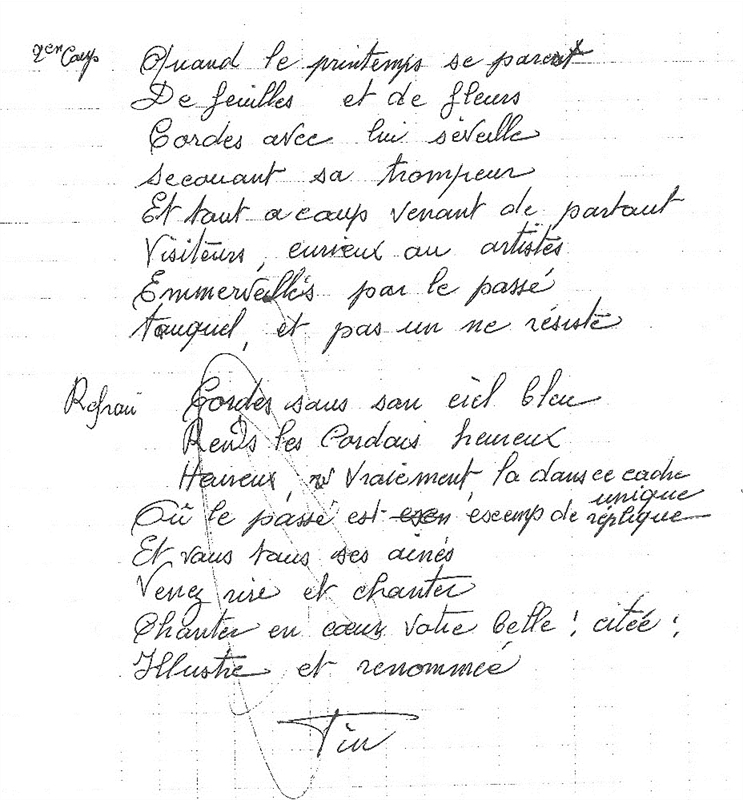 2em Coup
Quand le printemps se parent
De feuilles et de fleurs
Cordes avec lui séveille
secouant sa trompeur
Et tout a coup venant de partout
Visiteurs, curieux ou artistes
Emmerveillés par le passé
, et pas un ne résiste
Refrain
Cordes sous son ciel bleu
Rends les Cordais heureux
Heureux, vraiment, la dans ce cadre
unique
Où le passé est exemp de réplique
Et vous tous ses ainés
Venez rire et chanter
Chanter en cœur votre belle ! citée !
Illustre et renommée
Fin